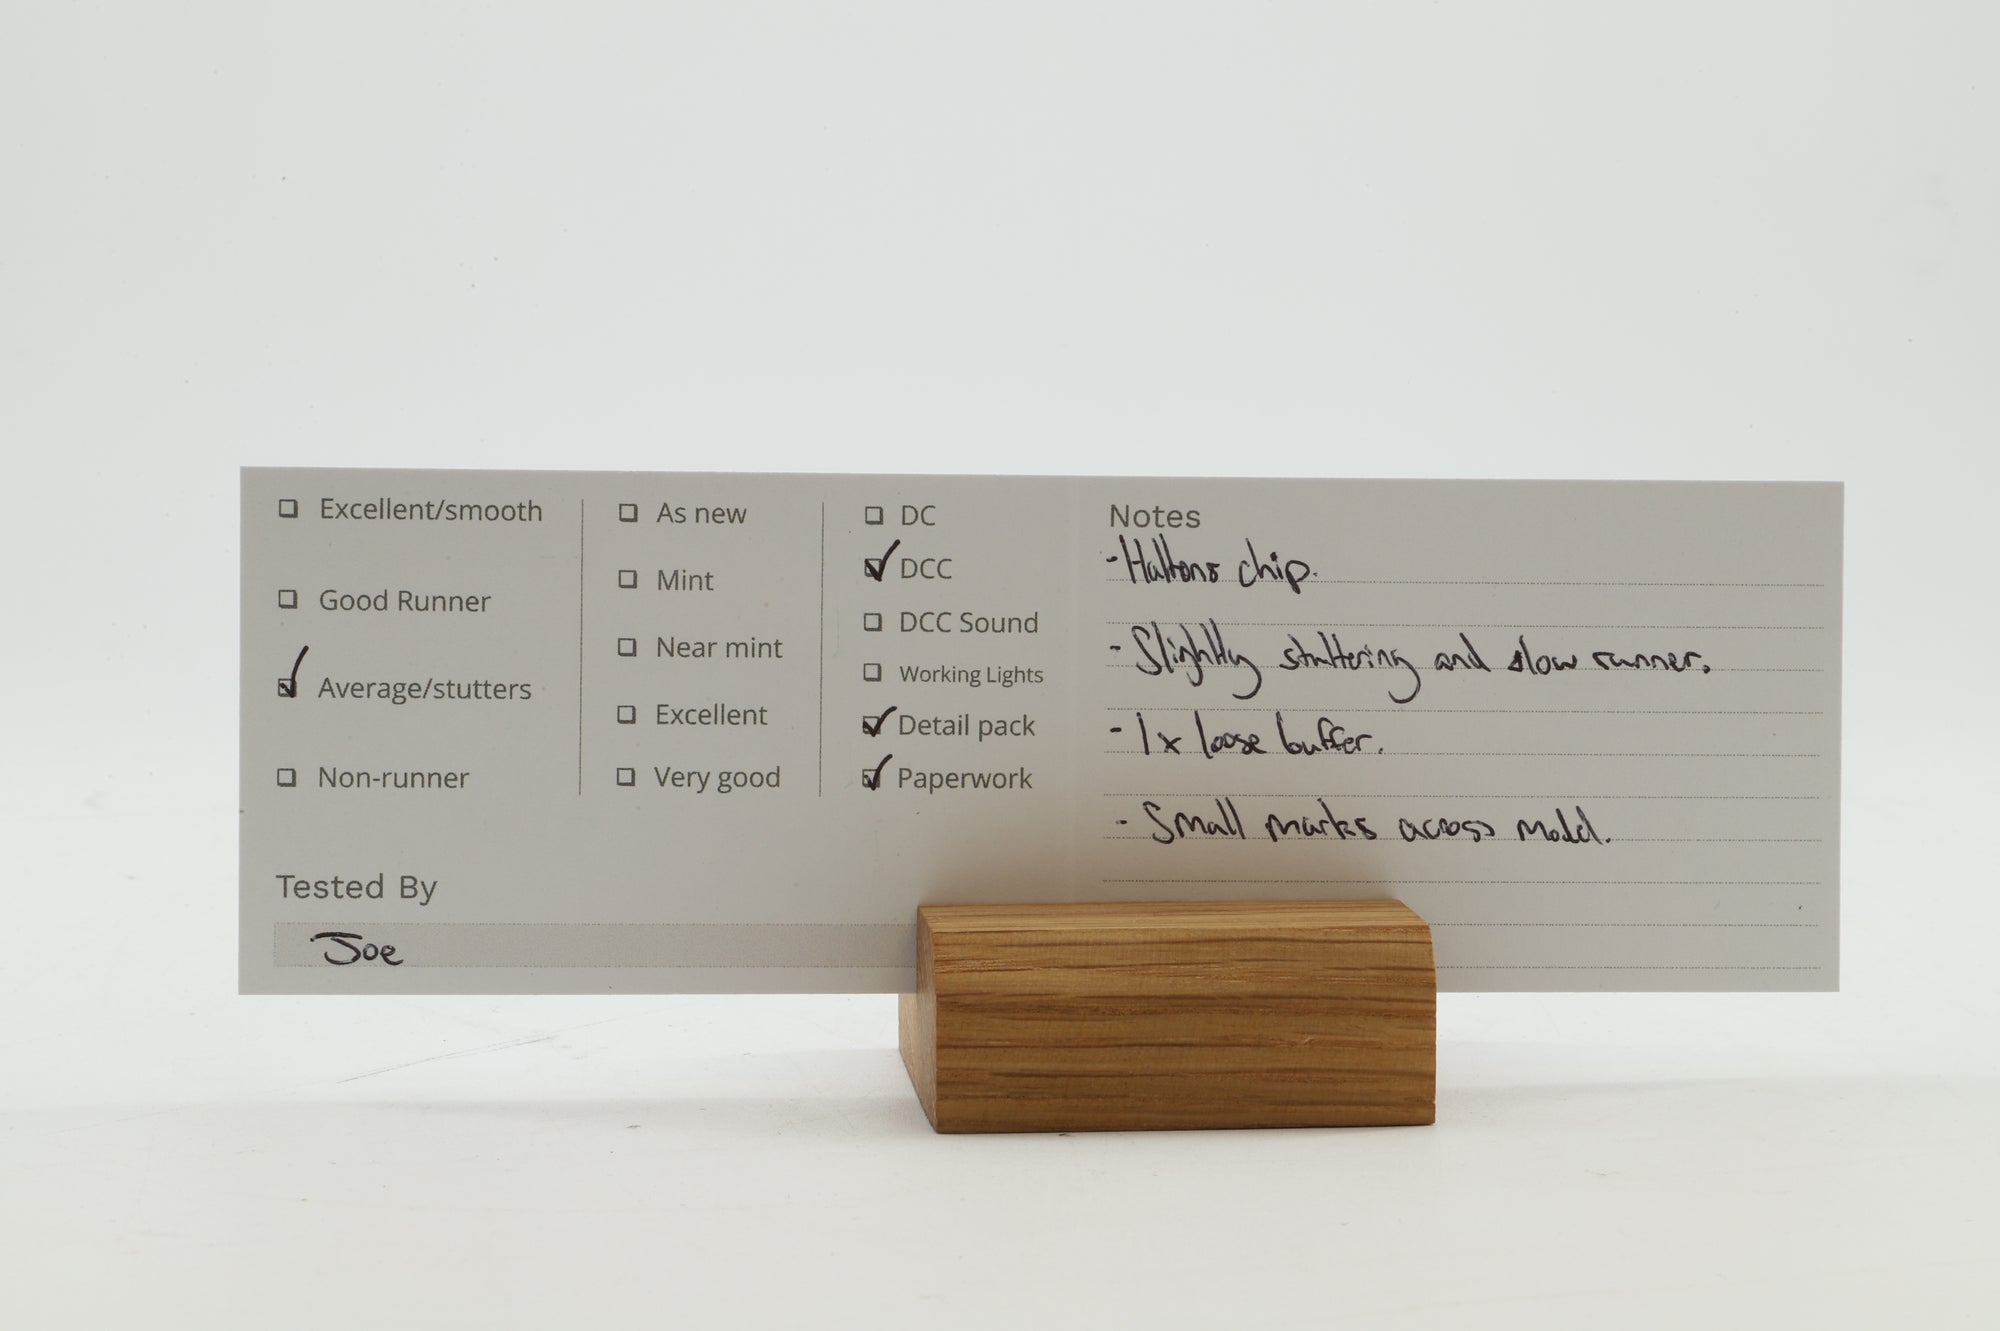 Excellent/smooth
Good Runner
Average/stutters
Non-runner
As new
Mint
Near mint
Excellent
Very good
DC
DCC
DCC Sound
Working Lights
Detail pack
Paperwork
Notes
- Hattons chip.
- Slightly stuttering and slow runner.
- 1x loose buffer.
- Small marks across model.
Tested By
Joe